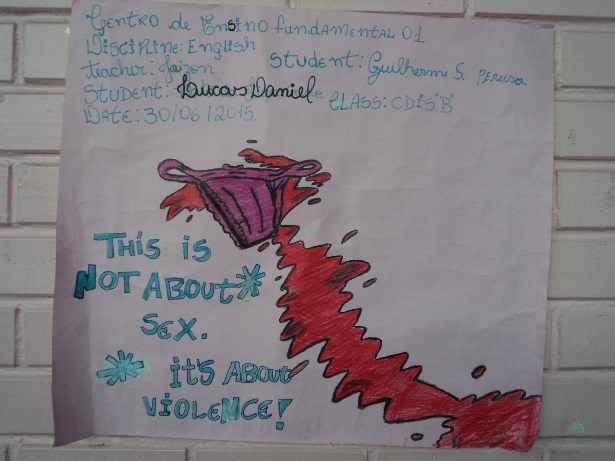 Centro de Ensino fundamental 01
Discipline: English
teacher: Jaizon
Student: Guilherme S. Pereira
Student: Laucas Daniel
CLASS: CDIS "B"
Date: 30/06/2015.
THIS IS
NOT ABOUT*
SEX.
* IT'S ABOUT
VIOLENCE!